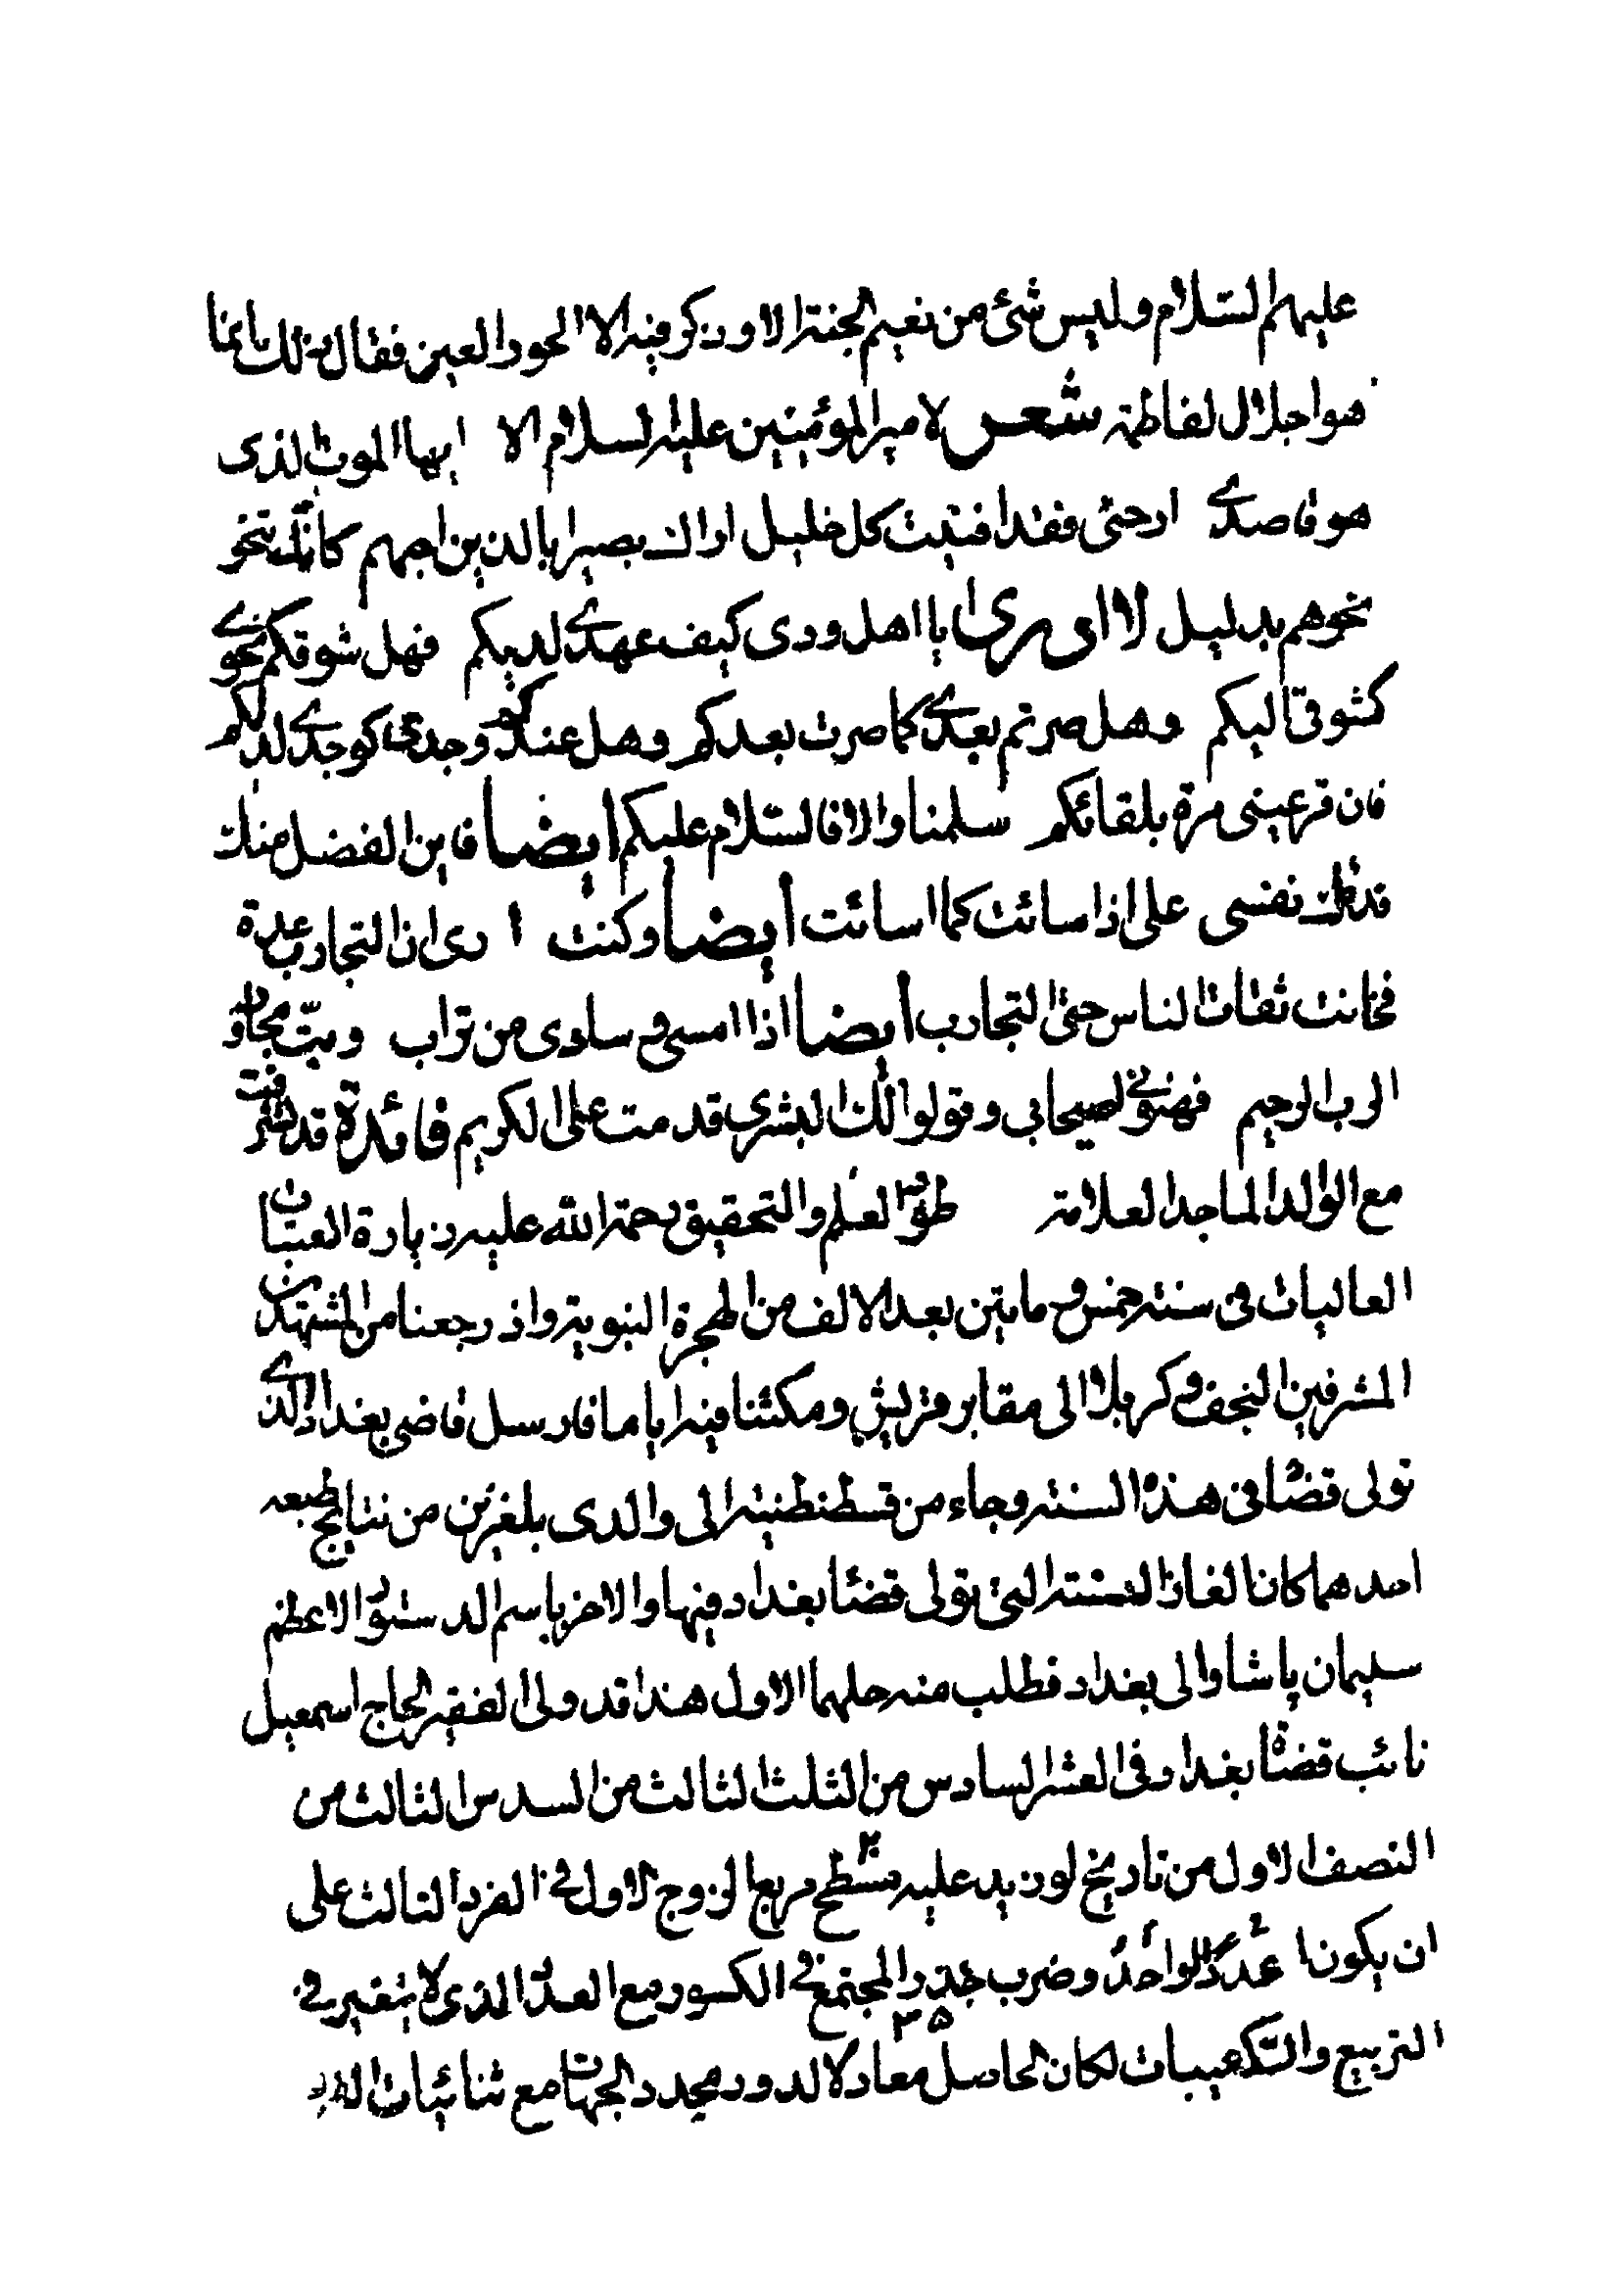 عليهم السلام وليس شئ من نعيم الجنة الا وذكر فيه الا الحور العين فقال ذلك بانما
هو اجلال لفاطمة شعر لامير المؤمنين عليه السلام الا ايها الموت الذى
هو قاصدى ارحنى فقد افنيت كل خليل اراك بصيرا بالذين احبهم كانك تنحو
نحوهم بدليل لا ادرى يا اهل ودى كيف عهدى لديكم فهل شوقكم نحوى
كشوقى اليكم وهل صرتم بعدى كما صرت بعدكم وهل عندكم وجدى كوجدى لديكم
فان قر عينى مرة بلقائكم سلمنا والا فالسلام عليكم ايضا فاين الفضل منك
فدتك نفسى على اذا اسائت كما اسائت ايضا وكنت ارى ان التجارب عدة
فخانت ثقات الناس حتى التجارب ايضا اذا امسى وسادى من تراب وبت مجاور
الرب الرحيم فهنونى اصيحابى وقولوا لك البشرى قدمت على الكريم فائدة قد تشرفت
مع الوالد الماجد العلامة طود العلم والتحقيق رحمة الله عليه بزيارة العتبات
العاليات فى سنة خمس و مايتين بعد الالف من الهجرة النبوية واذ رجعنا من المشهدين
المشرفين النجف وكربلا الى مقابر قريش ومكثنا فيه اياما فارسل قاضى بغداد الذى
تولى قضائا فى هذه السنة وجاء من قسطنطنية الى والدى بلغزين من نتايج طبعه
احدهما كان الغازا لسنة التى تولى قضا بغداد فيها والاخر باسم الدستور الاعظم
سليمان پاشا والى بغداد فطلب منه حلهما الاول هذا قد ولى الفقير الحاج اسمعيل
نائب قضا بغداد فى العشر السادس من الثلث الثالث من السدس الثالث من
النصف الاول من تاريخ لو زيد عليه مسطح مربع الزوج الاول فى الفرد الثالث على
ان يكون عدد الواحد وضرب جذر المجتمع فى الكسور مع العدد الذى لا يتغير فى
التربيع والتكعيبات لكان الحاصل معادلا لدور محدد الجهات مع ثنائيات